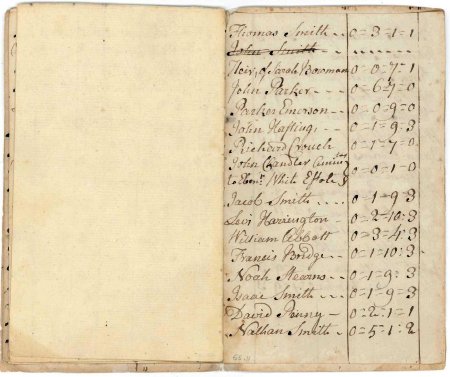 Thomas Smith -- 0=3=1=1
John Smith
Heirs of Sarah Bowman 0=0=7=1
John Parker --- 0=6=7=0
Parker Emerson -- 0=0=9=0
John Hasting --- 0=1=9=3
Richard Crouch 0=1=7=0
John Chandler
to White Estate 0=0=1=0
Jacob Smith .... 0=1=9=3
Levi Harrington - 0=2=10=3
William Abbott 0=3=4=3
Francis Bridge -- 0=1=10=3
Noah Stearns -- 0=1=9=3
Isaac Smith ... 0=1=9=3
David Penny - 0=2=1=1
Nathan Smith - 0=5=1=2